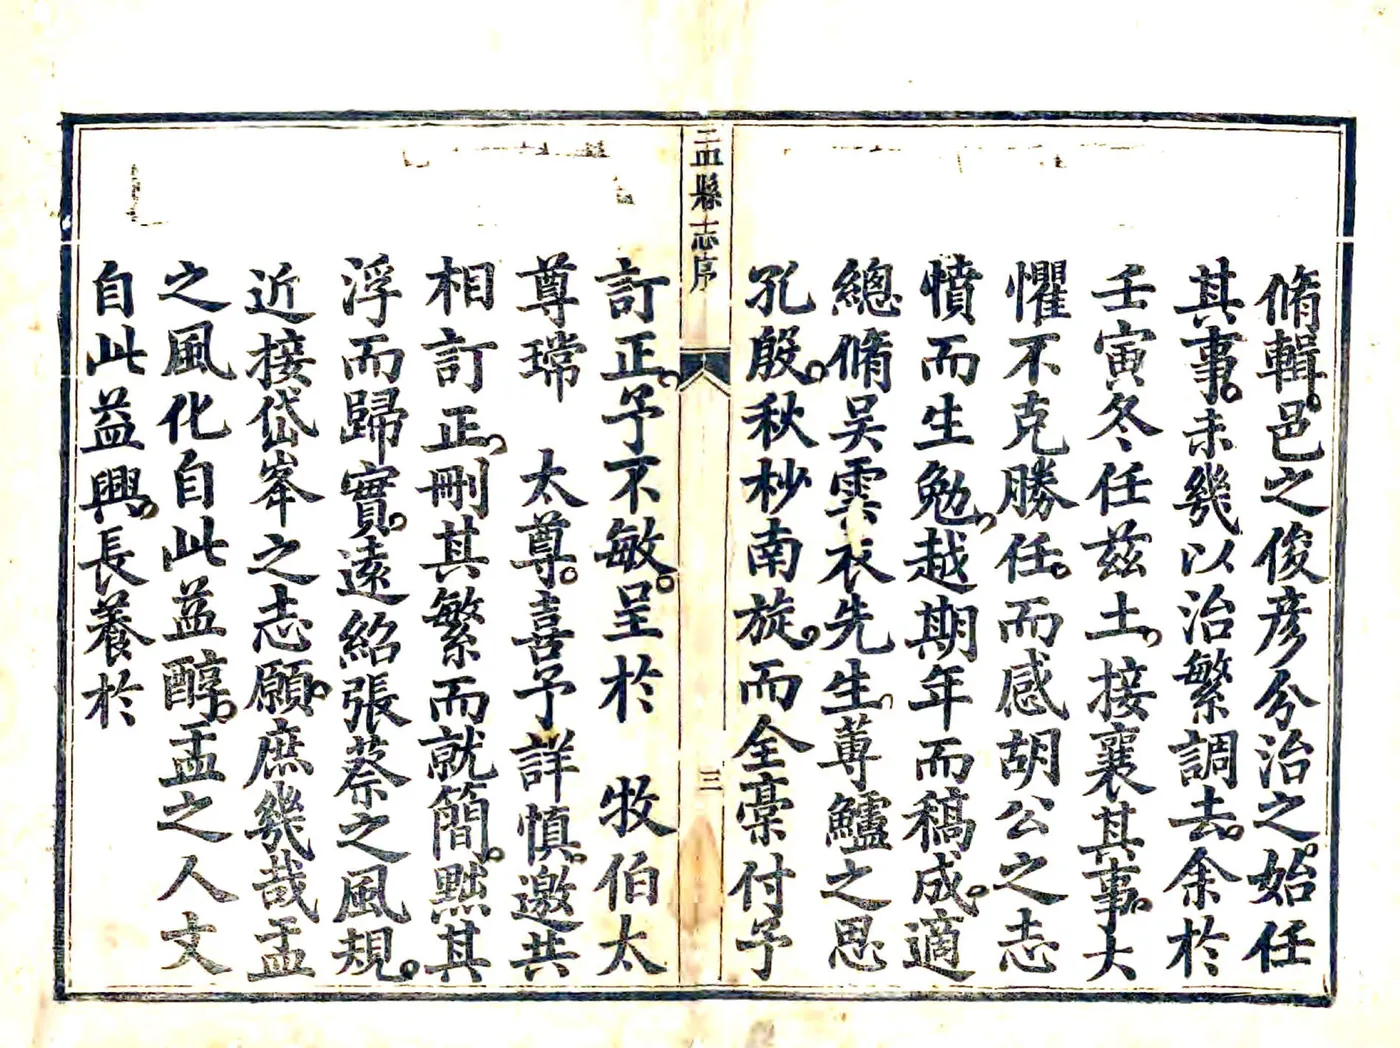 脩輯。邑之俊彥分治之。始任
其事。未幾以治繁調去。余於
壬寅冬任茲土。接襄其事。大
懼不克勝任。而感胡公之志
憤而生勉。越期年而稿成。適
總脩吳雲衣先生。蓴鱸之思
孔殷。秋杪南旋。而全稾付予
盂縣志序
三
訂正。予不敏。呈於 牧伯太
尊瑺 太尊。喜予詳慎。邀共
相訂正。刪其繁而就簡。黜其
浮而歸實。遠紹張蔡之風規。
近接岱峯之志願。庶幾哉盂
之風化自此益醇。盂之人文
自此益興。長養於